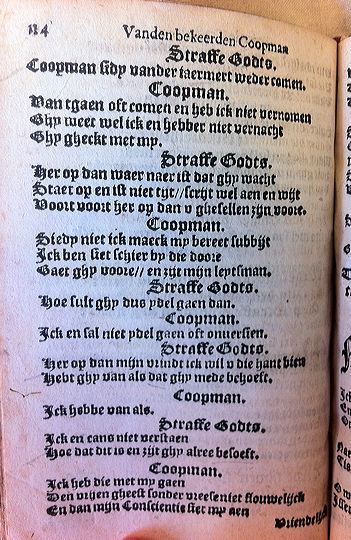 114 Vanden bekeerden Coopman
Straffe Godts.
Coopman sydy vander taermert weder comen.
Coopman.
Van tgaen oft comen en heb ick niet vernomen
Ghy weet wel ick en hebber niet vernacht
Ghy gheckt met my.
Straffe Godts.
Her op dan waer naer ist dat ghy wacht
Staet op en ist niet tyt// scrijt wel aen en wijt
Voort voort her op dan v ghesellen zijn voore.
Coopman.
Siedy niet ick maeck my bereet subbijt
Ick ben siet schier by die doore
Gaet ghy voore// en zijt mijn leytsman.
Straffe Godts.
Hoe sult ghy dus ydel gaen dan.
Coopman.
Ick en sal niet ydel gaen oft onversien.
Straffe Godts.
Her op dan mijn vrindt ick wil v die hant bien
Hebt ghy van als dat ghy mede behoeft.
Coopman.
Ick hebbe van als.
Straffe Godts.
Ick en cans niet verstaen
Hoe dat dit is en zijt ghy alree besoeft.
Coopman.
Ick heb die met my gaen
Den vrijen gheest sonder vreese niet flouwelijck
En dan mijn Conscientis siet my aen
Vriendelij